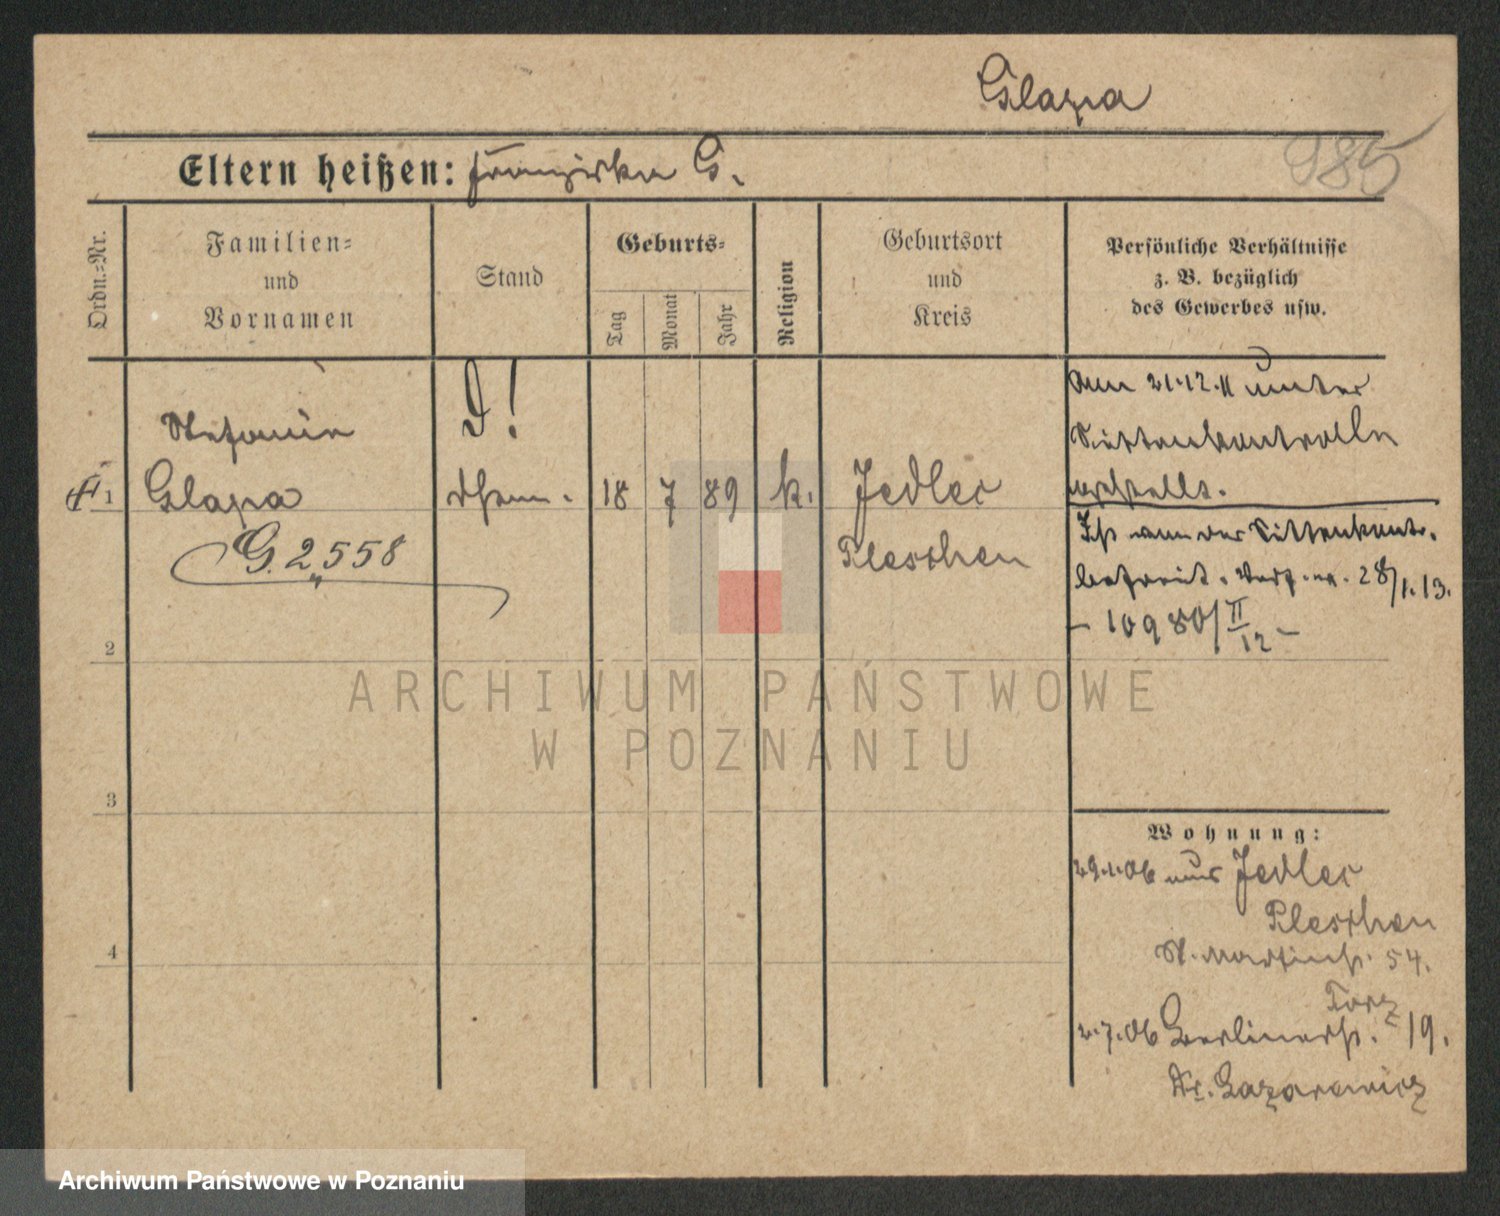 Glapia
985
Eltern heißen: Franziska G.
Ordn.=Nr.
Familien=
und
Vornamen
Stand
Geburts=
Tag
Monat
Jahr
Religion
Geburtsort
und
Kreis
Persönliche Verhältnisse
z. B. bezüglich
des Gewerbes usw.
D!
Stefanie
1 Glapia 18 7 89 k. Jedlec
Pleschen
G. 2558
Am 21.12.11 unter
Sittenkontrolle
gestellt.
Ist von der Sittenkontr.
befreit. Verf. v. 28/1.13.
- 10980/II
12 -
2
3
4
Wohnung:
29.1.06 aus Jedlec
Pleschen
St. Martinstr. 54.
2.7.06 Berlinerstr. 19.
Dr. Lazarewicz
ARCHIWUM PAŃSTWOWE
W POZNANIU
Archiwum Państwowe w Poznaniu